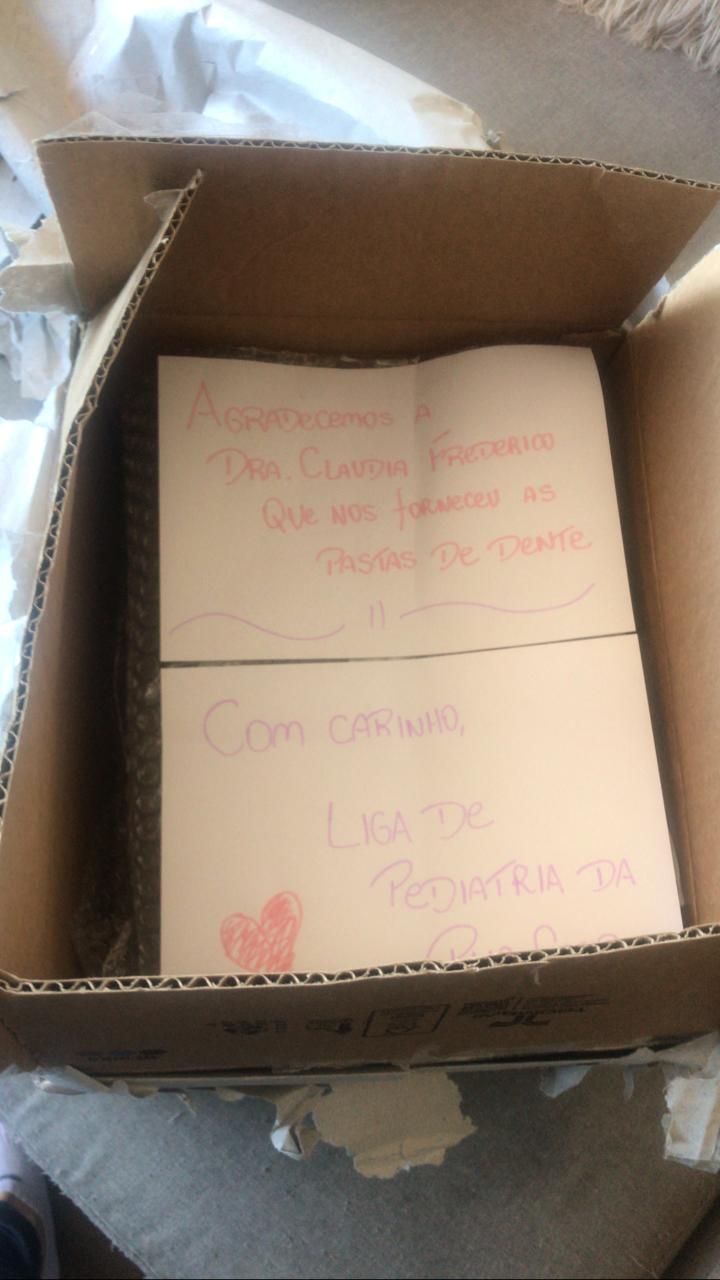 AGRADECEMOS A
DRA. CLAUDIA FREDERICO
QUE NOS FORNECEU AS
PASTAS DE DENTE
COM CARINHO,
LIGA DE
PEDIATRIA DA